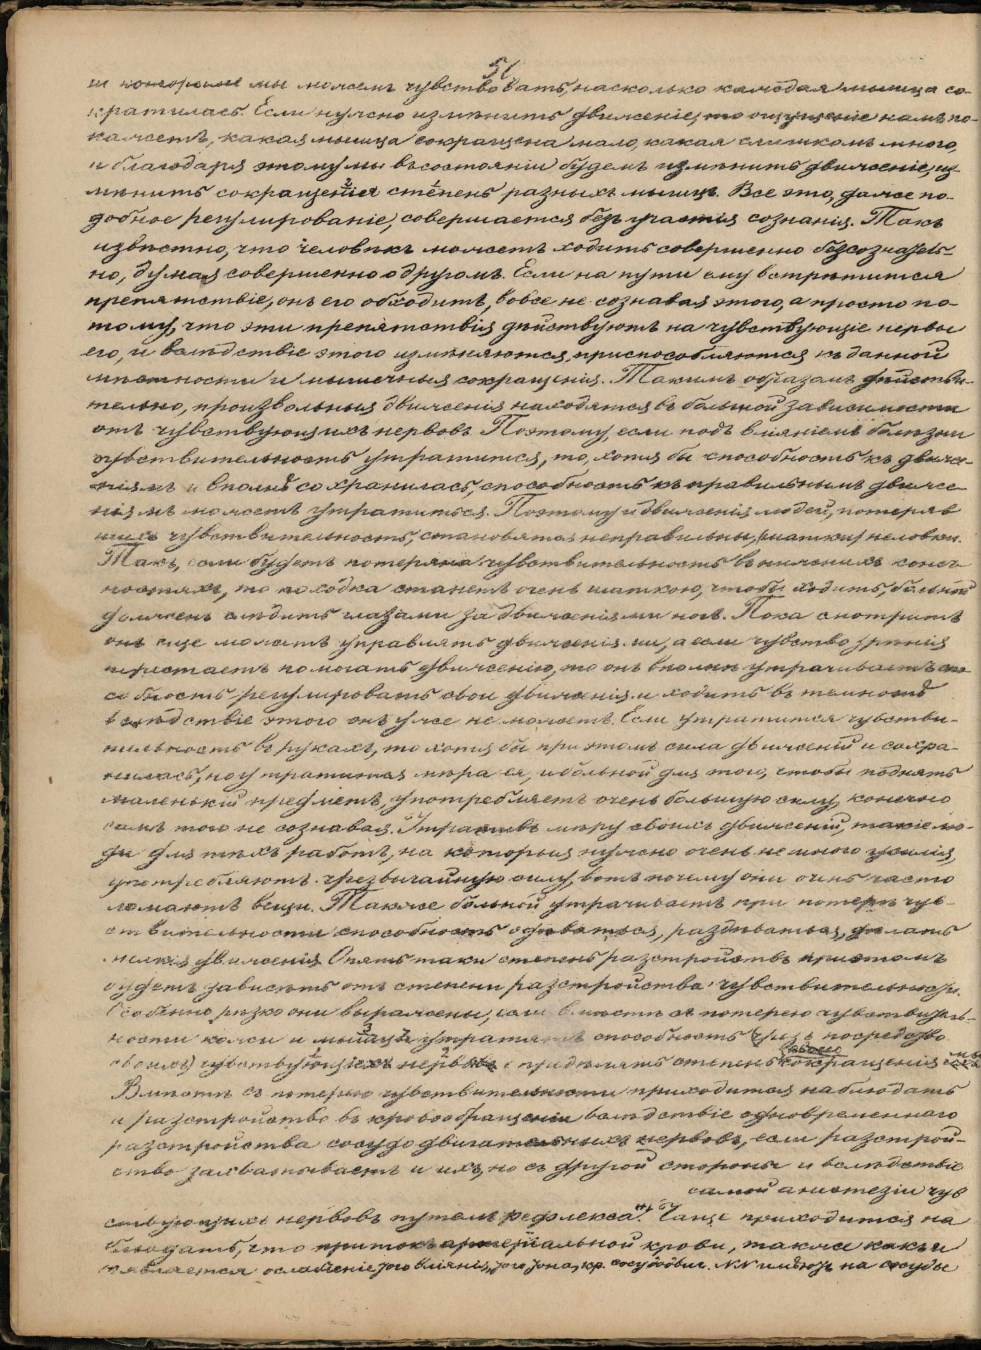 51
и которыми мы можемъ чувствовать, насколько каждая мышца со-
кратилась. Если нужно измѣнить движеніе, то ощущеніе намъ по-
кажетъ, какая мышца сокращена мало, какая слишкомъ много,
и благодаря этому мы въ состояніи будемъ измѣнить движеніе, из-
мѣнить сокращенія степень разныхъ мышцъ. Все это, даже по-
добное регулированіе, совершается безъ участія сознанія. Такъ
извѣстно, что человѣкъ можетъ ходить совершенно безсознатель-
но, думая совершенно о другомъ. Если на пути ему встрѣтится
препятствіе, онъ его обходитъ, вовсе не сознавая этого, а просто по-
тому, что эти препятствія дѣйствуютъ на чувствующіе нервы
его, и вслѣдствіе этого измѣняются, приспособляются къ данной
мѣстности и мышечныя сокращенія. Такимъ образомъ дѣйстви-
тельно, произвольныя движенія находятся въ большой зависимости
отъ чувствующихъ нервовъ. Поэтому, если подъ вліяніемъ болѣзни
чувствительность утратится, то, хотя бы способность къ движе-
ніямъ и вполнѣ сохранилась, способность къ правильнымъ движе-
ніямъ можетъ утратиться. Поэтому и движенія людей, потеряв
шихъ чувствительность, становятся неправильны, шатки, неловки.
Такъ, если будетъ потеряна чувствительность въ нижнихъ конеч-
ностяхъ, то походка станетъ очень шаткою, чтобы ходить, больной
долженъ слѣдить глазами за движеніями ногъ. Пока смотритъ
онъ еще можетъ управлять движеніями, а если чувство зрѣнія
перестаетъ помогать движенію, то онъ вполнѣ утрачиваетъ спо-
собность регулировать свои движенія и ходить въ темнотѣ
вслѣдствіе этого онъ уже не можетъ. Если утратится чувстви-
тельность въ рукахъ, то хотя бы при этомъ сила движеній и сохра-
нилась, но утратится мѣра ея, и больной для того, чтобы поднять
маленькій предметъ, употребляетъ очень большую силу, конечно
самъ того не сознавая. Утративъ мѣру своихъ движеній, такіе лю-
ди для тѣхъ работъ, на которыя нужно очень немного усилія,
употребляютъ чрезвычайную силу, вотъ почему они очень часто
ломаютъ вещи. Также больной утрачиваетъ при потерѣ чув-
ствительности способность одѣваться, раздѣваться, дѣлать
мелкія движенія. Опять таки степень разстройствъ при этомъ
будетъ зависѣть отъ степени разстройства чувствительности.
Особенно рѣзко они выражены, если вмѣстѣ съ потерею чувствитель-
ности кожи и мышцы утратятъ способность (чрезъ посредство
своихъ) чувствующихъ нервовъ опредѣлять степень своего сокращенія
Вмѣстѣ съ потерею чувствительности приходится наблюдать
и разстройство въ кровообращеніи вслѣдствіе одновременнаго
разстройства сосудодвигательныхъ нервовъ, если разстрой-
ство захватываетъ и ихъ, но съ другой стороны и вслѣдствіе
самой анестезіи чув
ствующихъ нервовъ путемъ рефлекса. Чаще приходится на
блюдать, что притокъ артеріальной крови, также какъ и
является ослабленіе вліянія сосудодвиг. на сосуды